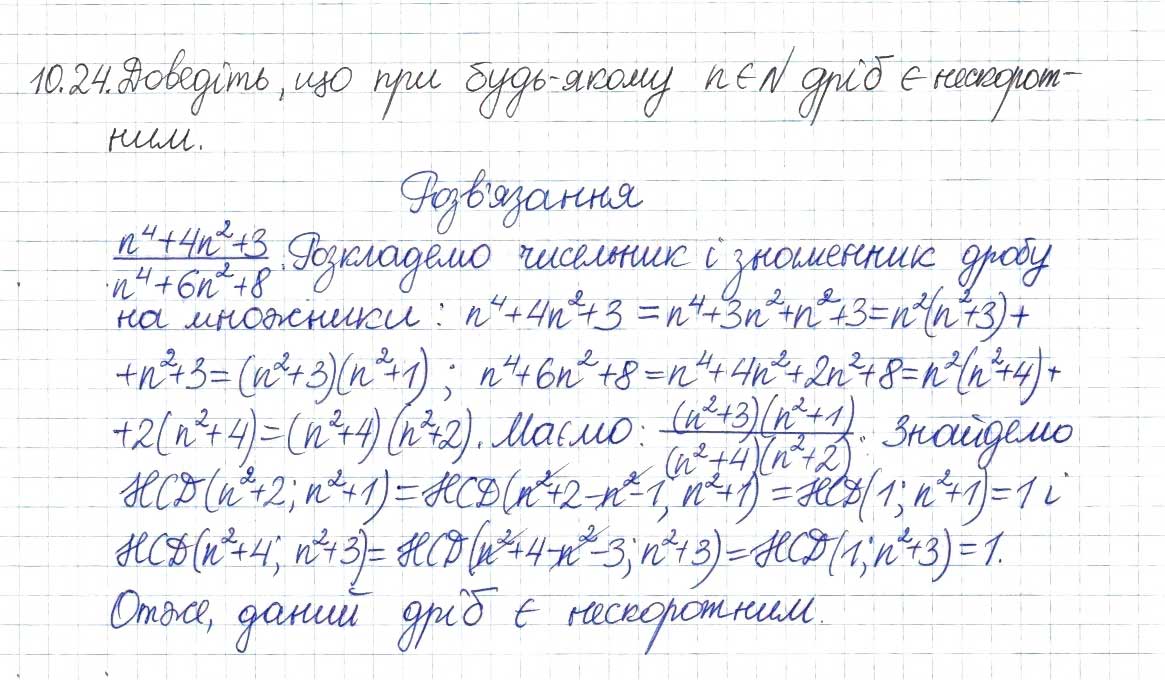 10.24. Доведіть, що при будь-якому n∈N дріб є нескорот-
ним.
Розв'язання
n⁴+4n²+3
n⁴+6n²+8
. Розкладемо чисельник і знаменник дробу
на множники: n⁴+4n²+3 = n⁴+3n²+n²+3=n²(n²+3)+
+n²+3=(n²+3)(n²+1); n⁴+6n²+8=n⁴+4n²+2n²+8=n²(n²+4)+
+2(n²+4)=(n²+4)(n²+2). Маємо: (n²+3)(n²+1)/(n²+4)(n²+2). Знайдемо
НСД(n²+2; n²+1)=НСД(n²+2-n²-1; n²+1)=НСД(1; n²+1)=1 і
НСД(n²+4; n²+3)=НСД(n²+4-n²-3; n²+3)=НСД(1; n²+3)=1.
Отже, даний дріб є нескоротним.